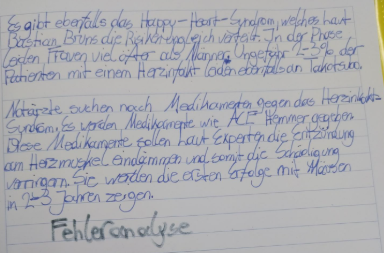 Es gibt ebenfalls das Happy-Heart-Syndrom, welches laut
Bastian Bruns die Risiken ungleich verteilt. In der Phase
leiden Frauen viel öfter als Männer. Ungefähr 2-3% der
Patienten mit einem Herzinfakt leiden ebenfalls an Takotsubo.
Notärzte suchen nach Medikamenten gegen das
Syndrom. Es werden Medikamente wie ACE Hemmer gegeben.
Diese Medikamente sollen laut Experten die Entzündung
am Herzmuskel eindämmen und somit die Schädigung
verringern. Sie werden die ersten Erfolge mit Mäusen
in 2-3 Jahren zeigen.
Fehleranalyse